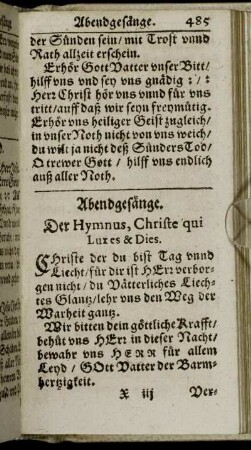 Abendgesänge. 485
der Sünden sein/ mit Trost vnnd
Rath allzeit erschein.
Erhör Gott Vatter vnser Bitt/
hilff vns vnd sey vns gnädig :/ :
Herꝛ Christ hör vns vnnd für vns
tritt/ auff daß wir seyn freymütig.
Erhör vns heiliger Geist zugleich/
in vnser Noth nicht von vns weich/
du wilt ja nicht deß Sünders Tod/
O trewer Gott/ hilff vns endlich
auß aller Noth.
Abendgesänge.
Der Hymnus, Christe qui
Luxes & Dies.
Christe der du bist Tag vnnd
Liecht/ für dir ist HErꝛ verbor-
gen nicht/ du Vätterliches Liech-
tes Glantz/ lehr vns den Weg der
Warheit gantz.
Wir bitten dein göttliche Krafft/
behüt vns HErꝛ in dieser Nacht/
bewahr vns HERR für allem
Leyd/ GOtt Vatter der Barm-
hertzigkeit.
X iij Ver-